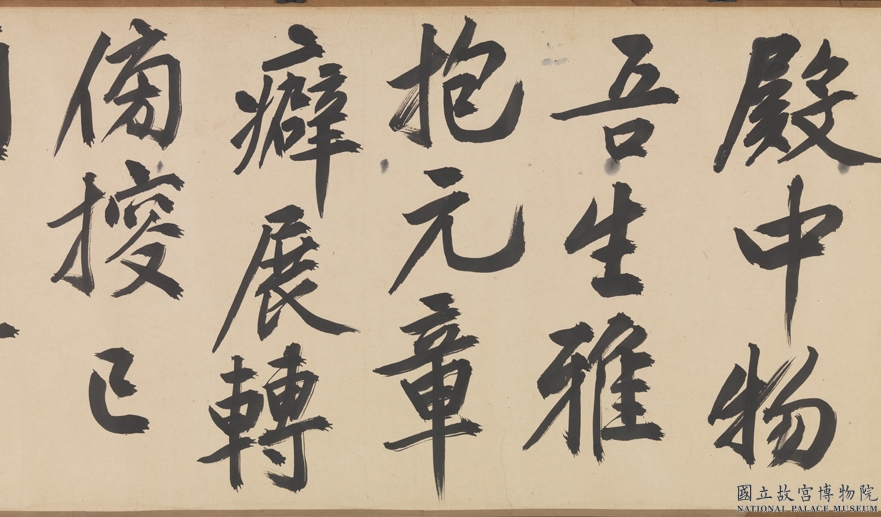 殿中物
吾生雅
抱元章
癖展轉
傍搜已
國立故宮博物院
NATIONAL PALACE MUSEUM